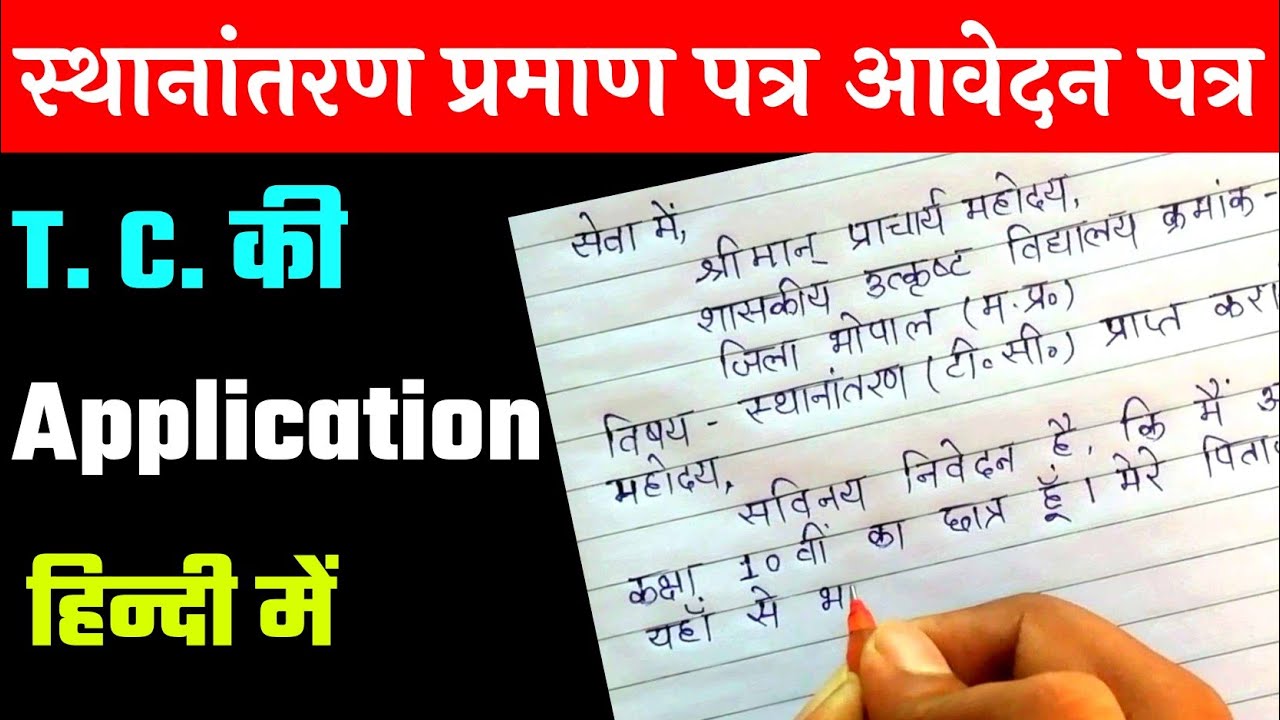 स्थानांतरण प्रमाण पत्र आवेदन पत्र
T. C. की
Application
हिन्दी में
सेवा में,
श्रीमान् प्राचार्य महोदय,
शासकीय उत्कृष्ट विद्यालय क्रमांक -
जिला भोपाल (म.प्र॰)
विषय - स्थानांतरण (टी॰सी॰) प्राप्त
महोदय,
सविनय निवेदन है, कि मैं
कक्षा 10वीं का छात्र हूँ। मेरे
यहाँ से